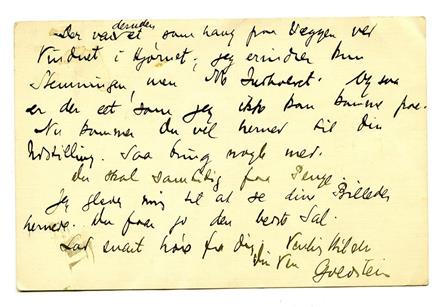 Der var desuden et som hang paa Væggen ved
Vinduet i Hjørnet, jeg erindrer kun
Stemningen, men Og saa
er der eet som jeg ikke kan komme paa.
Nu kommer Du vel herned til din
Udstilling. Saa bring nogle med.
Du skal samtidig faa Penge.
Jeg glæder mig til at se dine Billeder
hernede. Du faar jo den bedste Sal.
Lad snart høre fra Dig Venlig Hilsen
Din Ven Goldstein